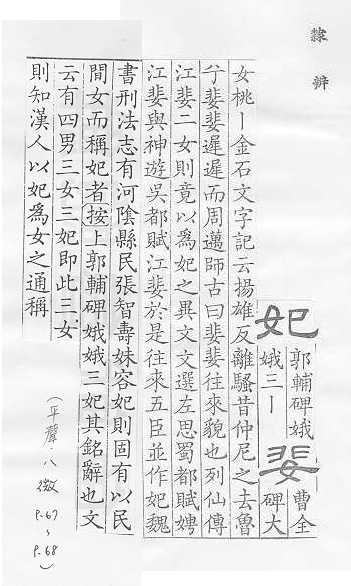 隸辨
妃 郭輔碑娥娥三丨 婓 曹全碑大
女桃丨金石文字記云揚雄反離騷昔仲尼之去魯
兮婓婓遲遲而周邁師古曰婓婓往來貌也列仙傳
江婓二女則竟以爲妃之異文文選左思蜀都賦娉
江婓與神遊吳都賦江婓於是往來五臣並作妃魏
書刑法志有河陰縣民張智壽妹容妃則固有以民
間女而稱妃者按上郭輔碑娥娥三妃其銘辭也文
云有四男三女三妃即此三女
則知漢人以妃爲女之通稱
(平聲.八微 P.67~P.68)